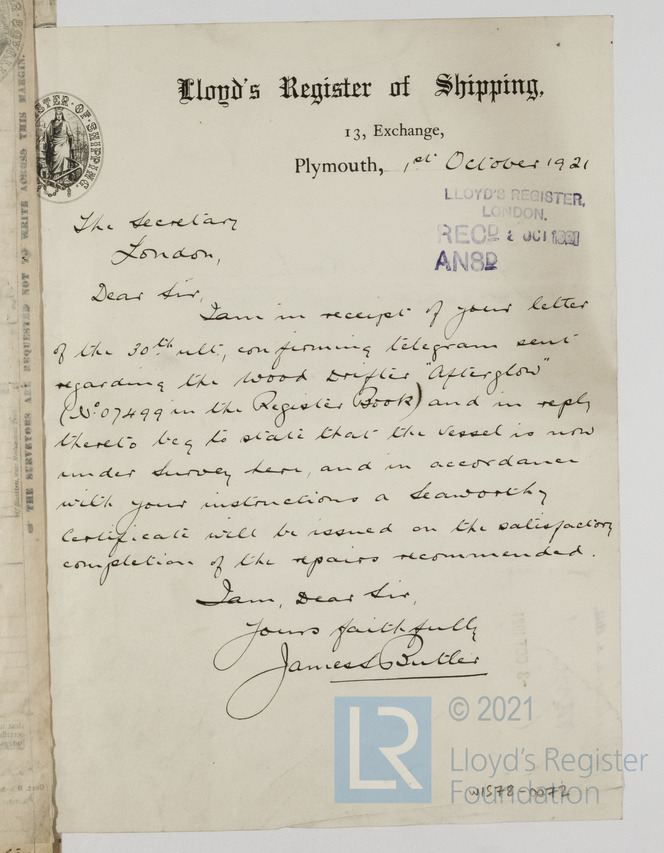 Lloyd's Register of Shipping,
13, Exchange,
Plymouth, 1st October 1921
LLOYD'S REGISTER,
LONDON.
RECD 2 OCT 1921
ANSD
The Secretary
London,
Dear Sir,
I am in receipt of your letter
of the 30th ult, confirming telegram sent
regarding the Wood Drifter "Afterglow"
(No 07499 in the Register Book) and in reply
thereto beg to state that the vessel is now
under Survey here, and in accordance
with your instructions a Seaworthy
Certificate will be issued on the satisfactory
completion of the repairs recommended.
I am, Dear Sir,
Yours faithfully
James Butler
© 2021
LR
Lloyd's Register
Foundation
W1578-0072
THE SURVEYORS ARE REQUESTED NOT TO WRITE ACROSS THIS MARGIN.